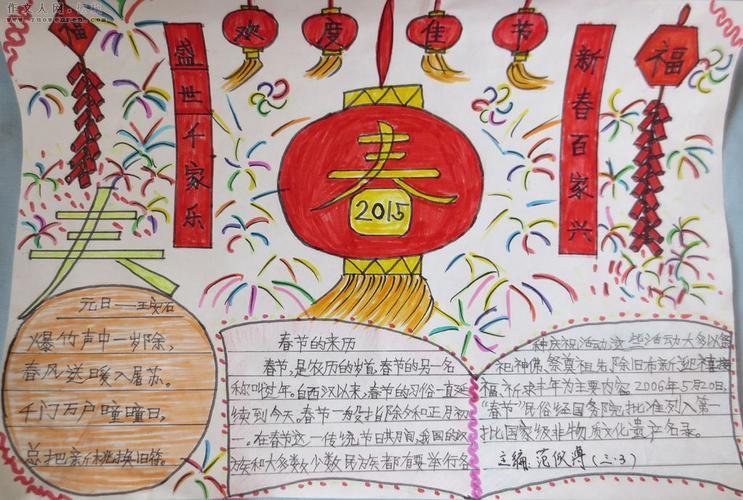 作文人网
欢度佳节
福
盛世千家乐
春
2015
新春百家兴
福
春
元日——王安石
爆竹声中一岁除,
春风送暖入屠苏。
千门万户瞳瞳日,
总把新桃换旧符。
春节的来历
春节,是农历的岁首,春节的另一名
称叫过年。自西汉以来,春节的习俗一直延
续到今天。春节一般指除夕和正月初
一。在春节这一传统节日其间,我国的汉
族和大多数少数民族都有要举行各
种庆祝活动,这些活动大多以祭
祀神佛、祭奠祖先、除旧布新、迎禧接
福、祈求丰年为主要内容。2006年5月20日,
“春节”民俗经国务院批准列入第一
批国家级非物质文化遗产名录。
主编:范仪(三·3)